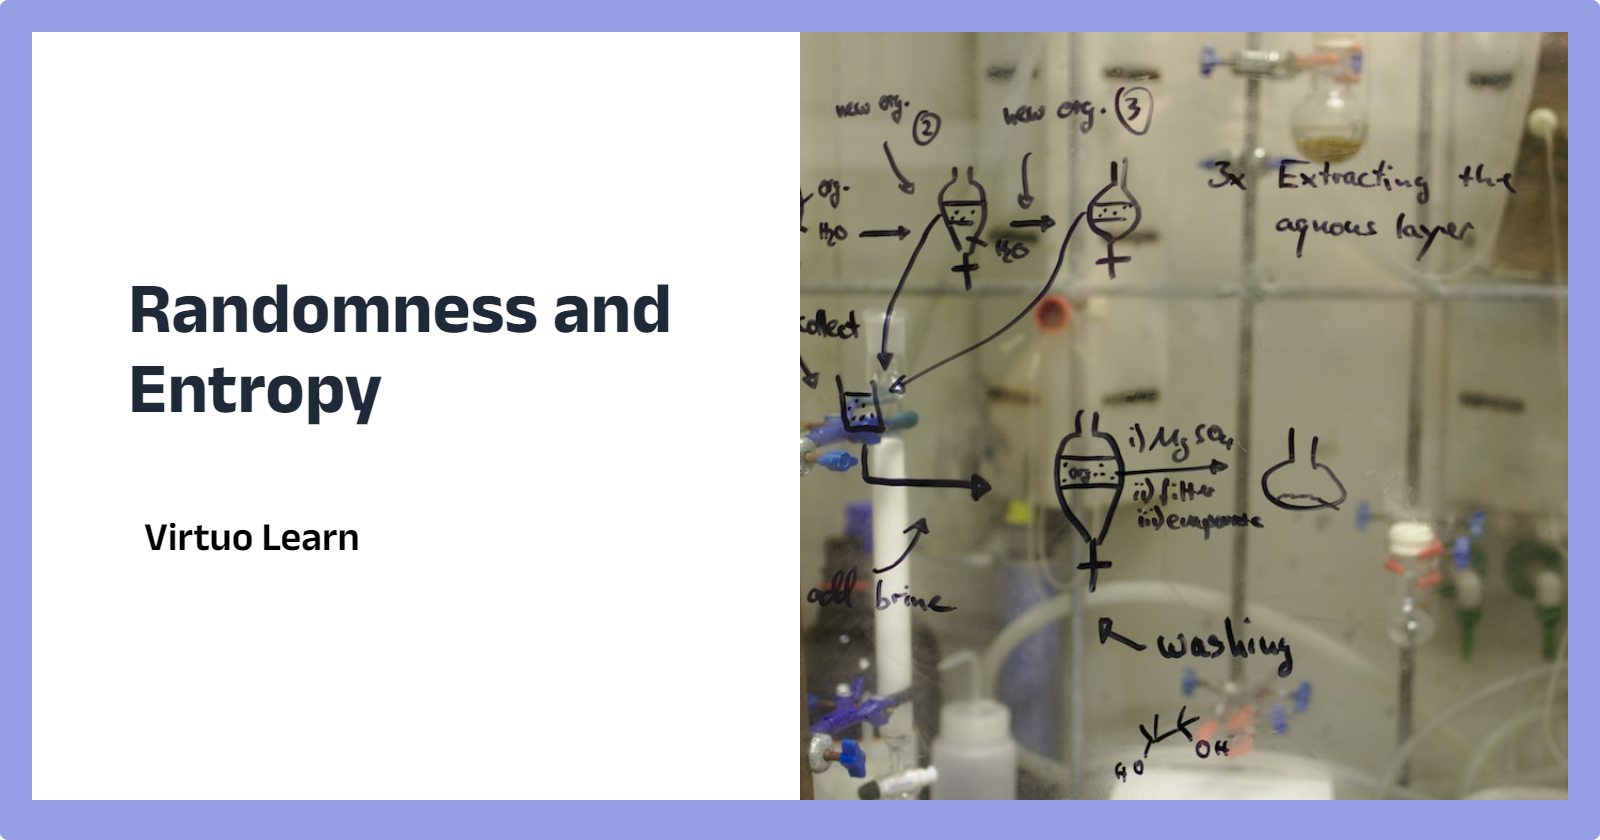 Randomness and
Entropy
Virtuo Learn
new org. 2
new org. 3
org.
H₂O
H₂O
3x Extracting the
aquous layer
collect
org
i) MgSO₄
ii) filter
iii) evaporate
add brine
washing
HO
OH